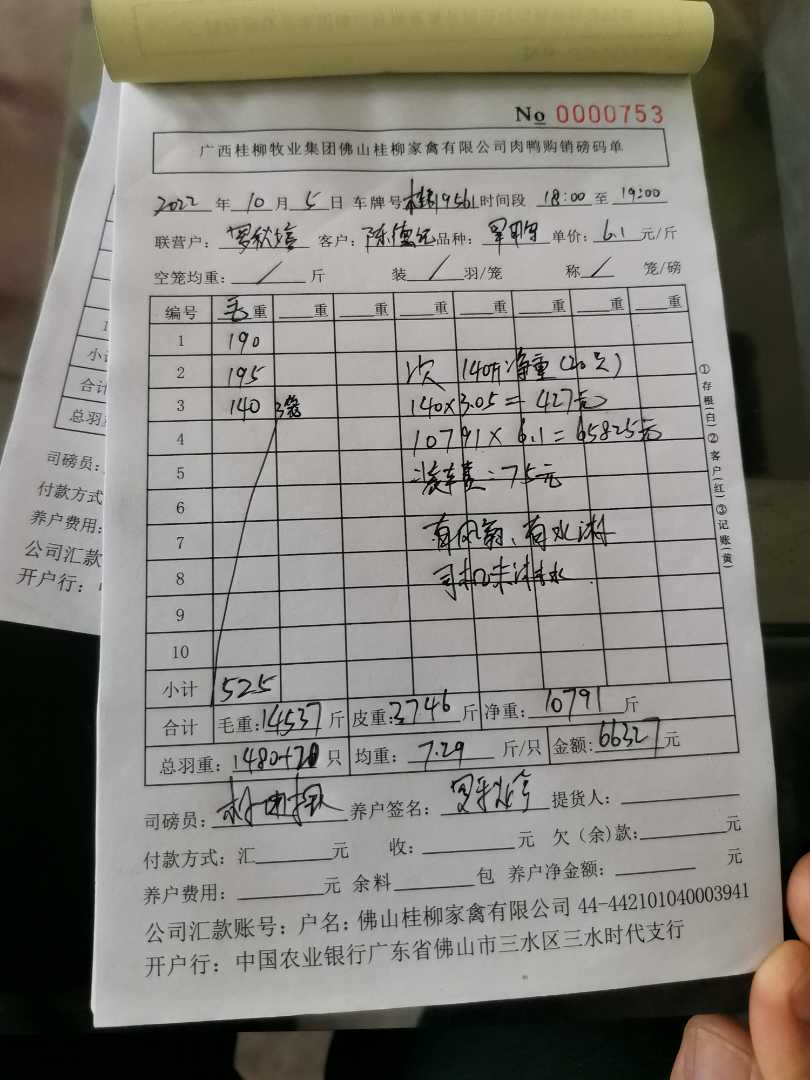 No 0000753
广西桂柳牧业集团佛山桂柳家禽有限公司肉鸭购销磅码单
2022 年 10 月 5 日 车牌号 9561 时间段 18:00 至 19:00
联营户： 客户：陈德 品种： 单价：6.1 元/斤
空笼均重：/ 斤 装 / 羽/笼 称 / 笼/磅
编号 毛重 重 重 重 重 重 重 重
1 190
2 195 次 140斤净重（20只）
3 140 140×3.05=427元
4 10791×6.1=65825元
5 装车费：75元
6
7 有风 有水淋
8 司机未淋水
9
10
小计 525
合计 毛重：14537 斤 皮重：3746 斤 净重：10791 斤
总羽重：1480+20 只 均重：7.29 斤/只 金额：66327 元
司磅员： 养户签名：罗 提货人：
付款方式：汇 元 收： 元 欠（余）款： 元
养户费用： 元 余料 包 养户净金额： 元
公司汇款账号：户名：佛山桂柳家禽有限公司 44-442101040003941
开户行：中国农业银行广东省佛山市三水区三水时代支行
①存根(白)②客户(红)③记账(黄)
小计
合计
总羽
司磅员：
付款方式
养户费用：
公司汇款
开户行：